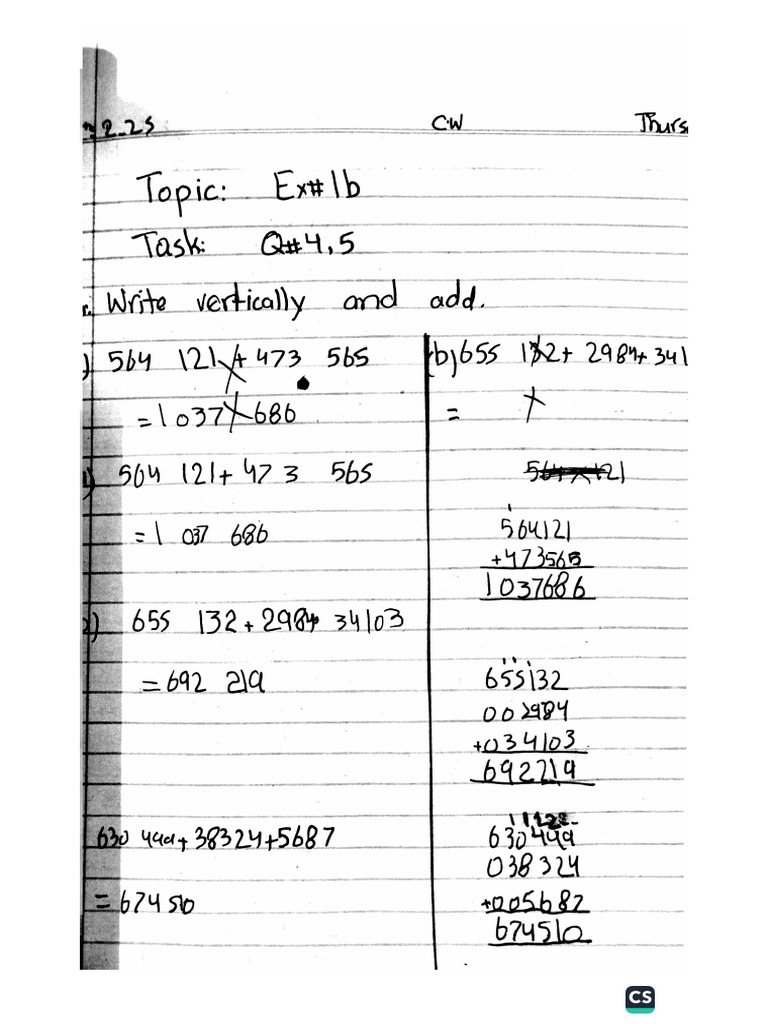 2-25 CW Thurs
Topic: Ex#1b
Task: Q#4,5
Write vertically and add.
) 564 121 + 473 565
= 1 037 686
(b) 655 132 + 2984 + 341
=
) 564 121 + 473 565
= 1 037 686
564121
+473565
1037686
) 655 132 + 2984 + 34103
= 692 219
655132
002984
+034103
692219
630 449 + 38324 + 5687
= 674 510
630449
038324
+005682
674510
CS